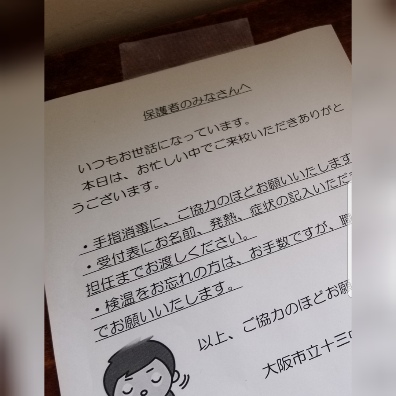 保護者のみなさんへ
いつもお世話になっています。
本日は、お忙しい中でご来校いただきありがと
うございます。
・手指消毒に、ご協力のほどお願いいたします
・受付表にお名前、発熱、症状の記入いただ
担任までお渡しください。
・検温をお忘れの方は、お手数ですが、
でお願いいたします。
以上、ご協力のほどお願
大阪市立十三